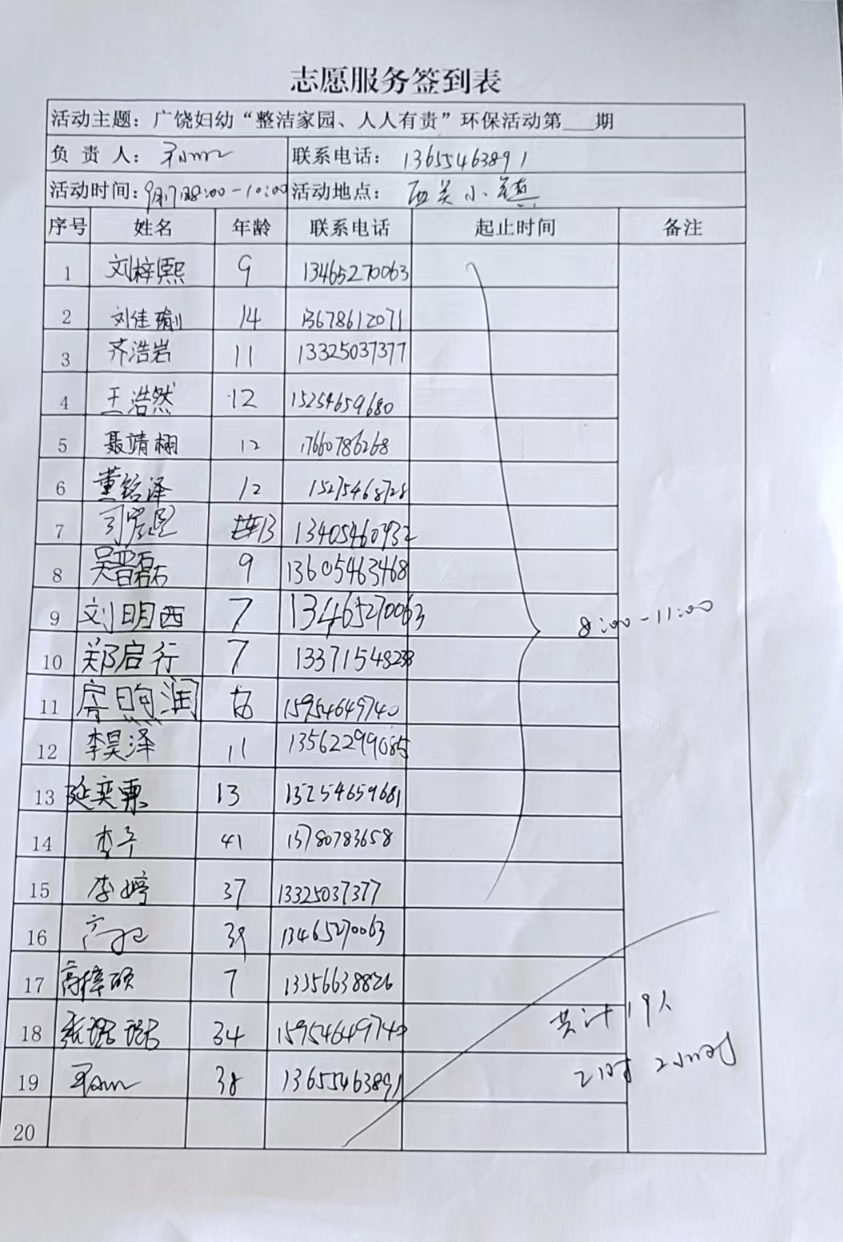 志愿服务签到表
活动主题：广饶妇幼“整洁家园、人人有责”环保活动第___期
负 责 人： 联系电话：13655463891
活动时间：9月17日8:00-10:00 活动地点：西关小镇
序号 姓名 年龄 联系电话 起止时间 备注
1 刘梓熙 9 13465270063
2 刘佳瑜 14 13678612071
3 齐浩岩 11 13325037377
4 王浩然 12 15254659680
5 聂靖栩 12 17660786268
6 董铭泽 12 15275468728
7 13 13405460932
8 吴晋磊 9 13605463468
9 刘明西 7 13465270063
8:00-11:00
10 郑启行 7 13371548238
11 房煦润 15954649740
12 李昊泽 11 13562299085
13 延奕栗 13 15254659681
14 李宁 41 13780783658
15 李婷 37 13325037377
16 39 13465270063
17 高梓硕 7 13356638826
18 张珺 34 15954649740
共计19人
19 38 13655463891
2小时
20